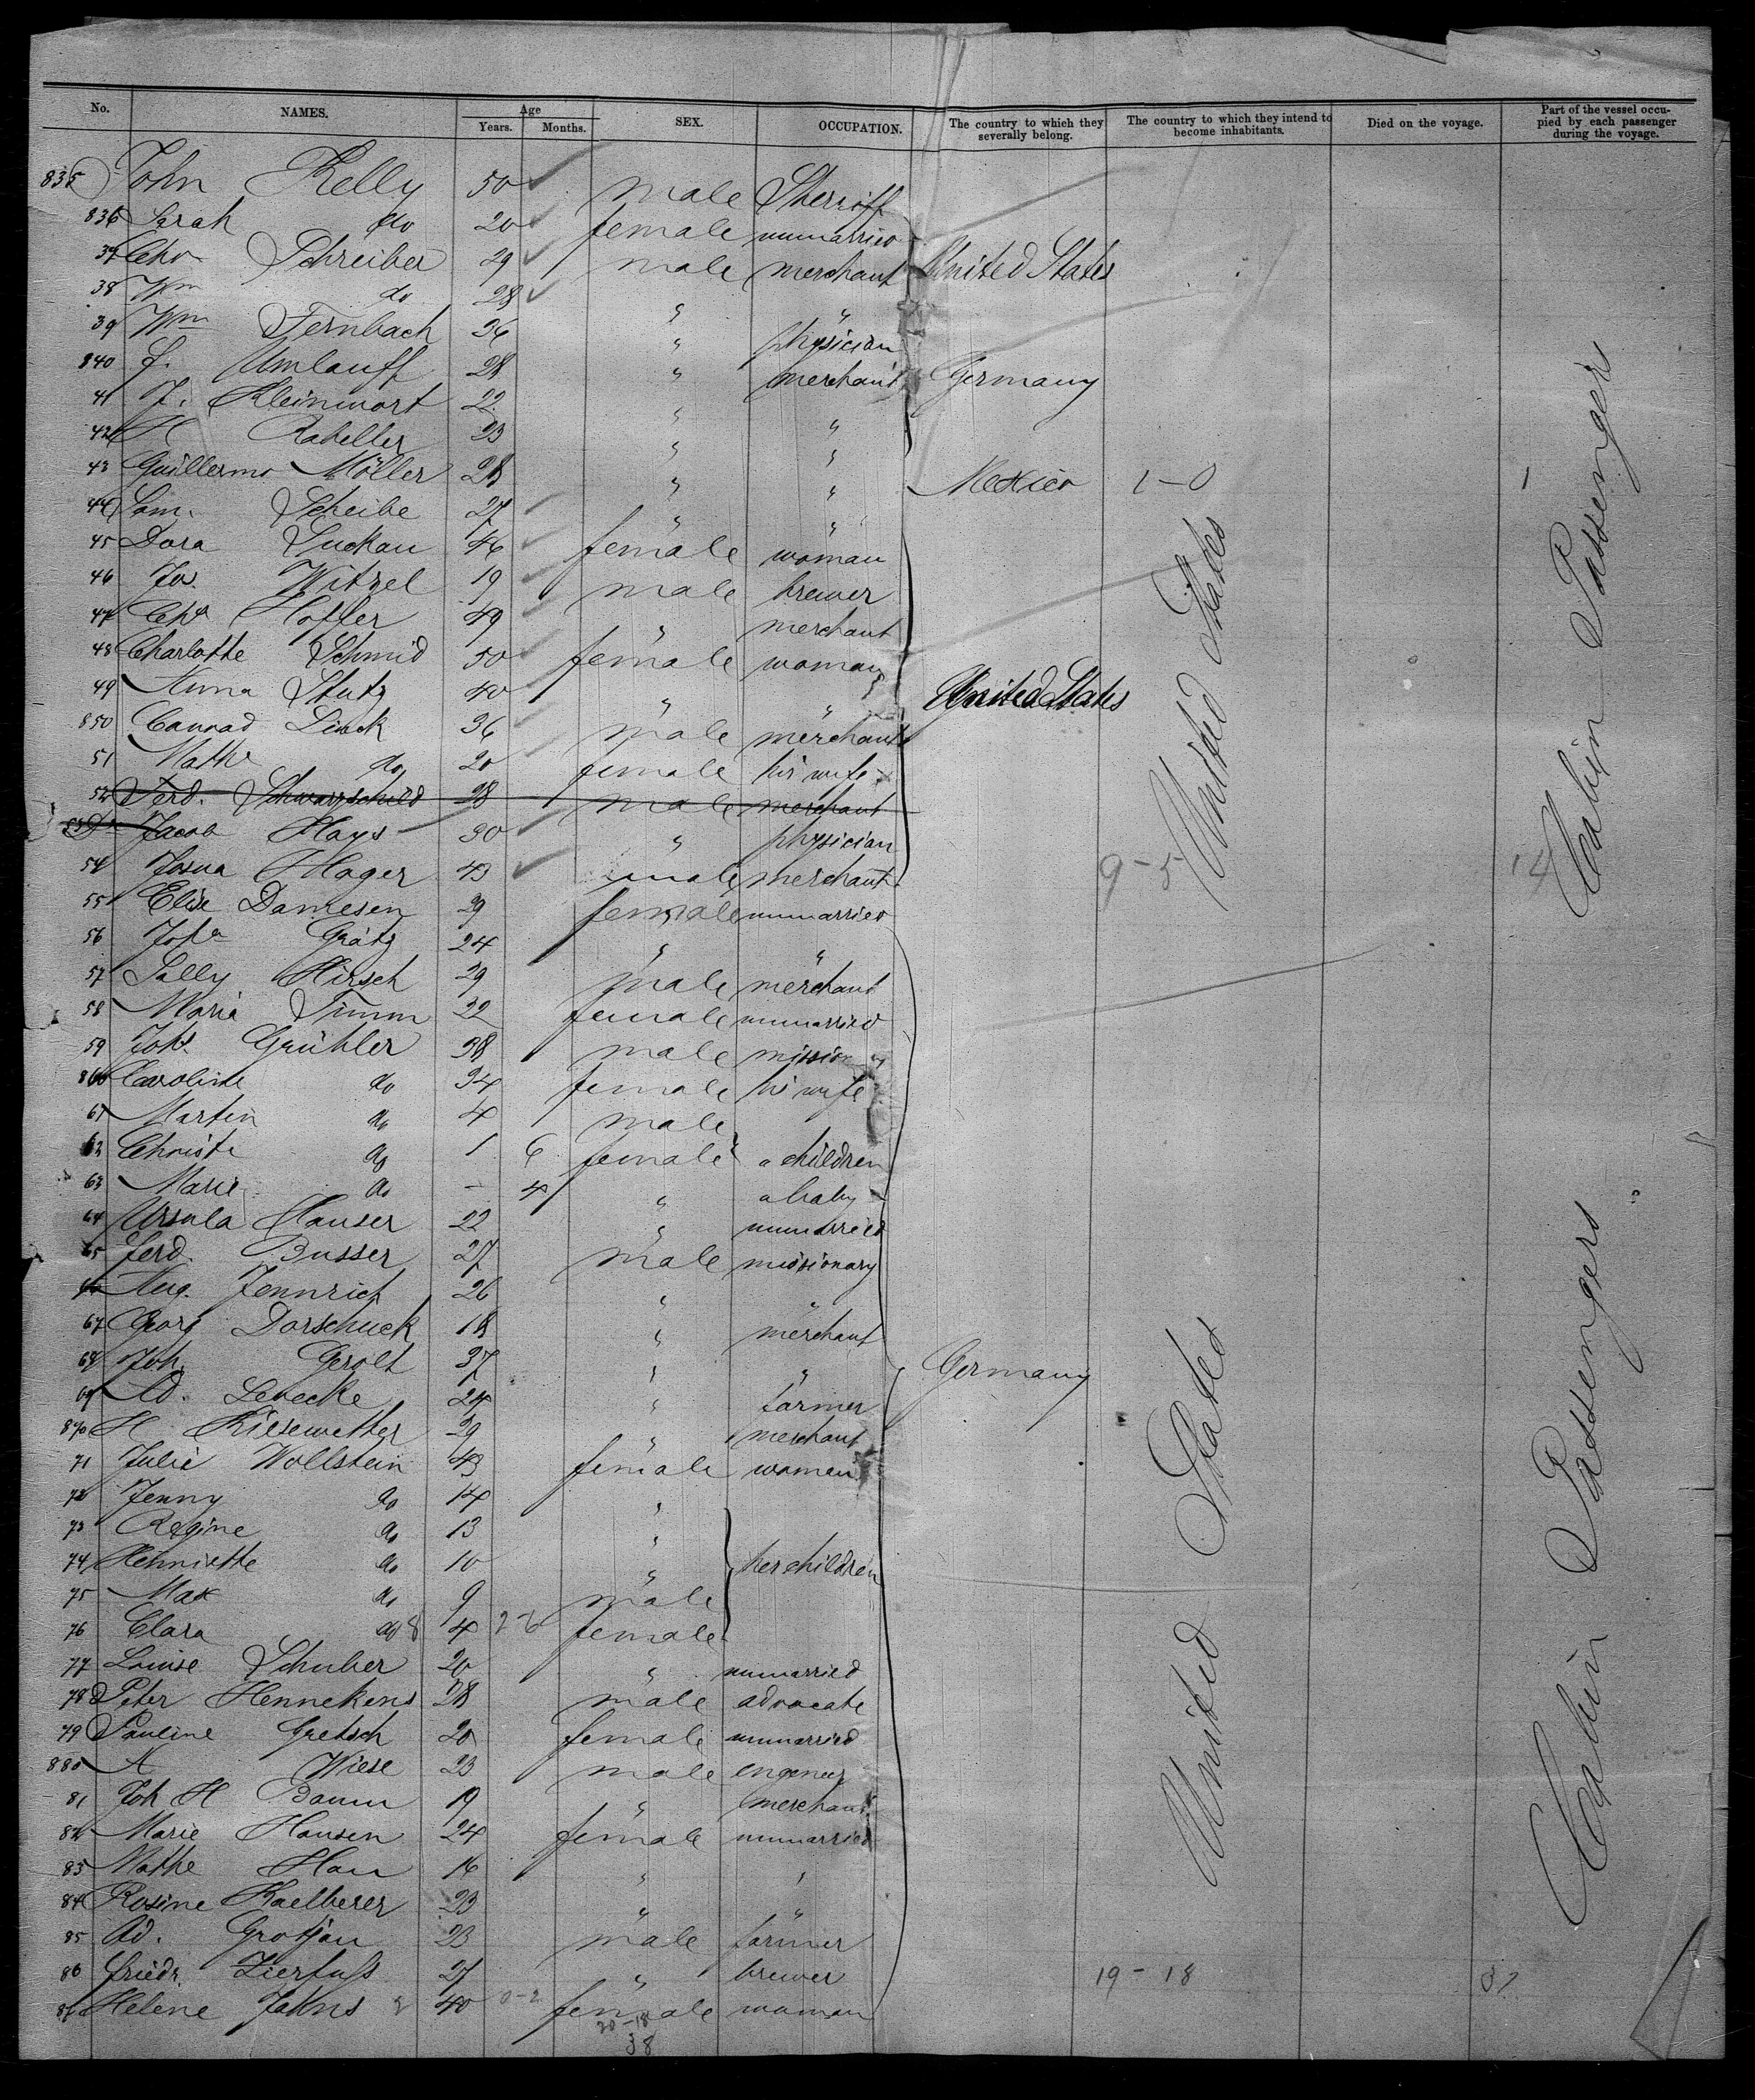 No. NAMES. Age Years. Months. SEX. OCCUPATION. The country to which they severally belong. The country to which they intend to become inhabitants. Died on the voyage. Part of the vessel occupied by each passenger during the voyage.
835 John Kelly 50 male Sherriff
836 Sarah do 20 female unmarried
37 Schreiber 29 male merchant United States
38 Wm do 28 " "
39 Wm Fernbach 36 " physician
840 F. Umlauff 28 " merchant Germany
41 J. Kleinwort 22 " "
42 H 23 " "
43 Guillermo Möller 28 " " Mexico 1-0 1
44 Sam. Scheibe 27 " "
45 Dora Suckau 46 female woman
46 Jos. Witzel 19 male brewer
47 Chs Hoffer 49 " merchant
48 Charlotte Schmid 50 female woman
49 Anna Stutz 40 " " United States
850 Conrad Linck 36 male merchant
51 Mathe do 20 female his wife
52 Ferd. Schwarzschild 28 male merchant
53 Dr Jacob Hays 30 " physician
54 Josua Hager 43 male merchant 9-5 United States 14 Cabin Passengers
55 Elise Damesen 29 female unmarried
56 Grätz 24 " "
57 Sally Hirsch 29 male merchant
58 Maria Timm 22 female unmarried
59 Johs. Grühler 38 male
860 Caroline do 34 female his wife
61 Martin do 4 male
62 Christe do 1 6 female children
63 Marie do - 4 " a baby
64 Ursula Hauser 22 " unmarried
65 Ferd. Busser 27 male missionary
66 Aug. Jennrich 26 " "
67 Georg Dorschuck 18 " merchant
68 Joh. Gerolt 37 " " Germany
69 Ad. Lenecke 24 " farmer
870 H Kiesewetter 29 " merchant
71 Julie Wollstein 43 female woman
72 Jenny do 14 "
73 Regine do 13 "
74 Henriette do 10 " her children
75 Max do 9 male
76 Clara do 8 4 2-6 female
77 Louise Schuber 20 " unmarried
78 Peter Hennekens 28 male advocate
79 Pauline Gretsch 20 female unmarried
880 A Wiese 23 male engeneer
81 Joh H Baum 19 " merchant
82 Marie Hansen 24 female unmarried
83 Mathe Hau 16 " "
84 Rosine Kaelberer 23 " "
85 Ad. Grotjan 23 male farmer
86 Friedr. Zierfuss 27 " brewer 19-18 37
87 Helene Jahns 2 40 0-2 female woman
United States Cabin Passengers
20-18
38